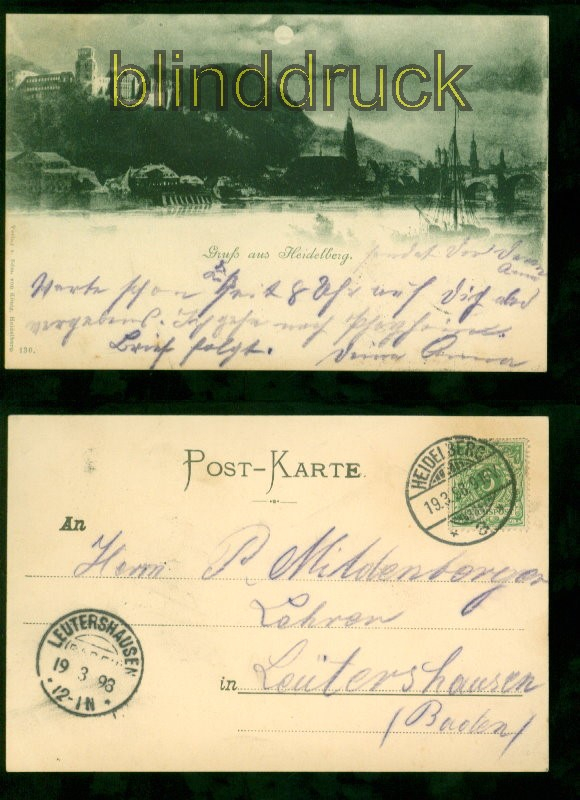 blinddruck
Gruß aus Heidelberg.
sendet Dir Deine
Anna
Warte schon seit 8 Uhr auf Dich aber
vergebens. Ich gehe nach
Brief folgt. Deine Anna
136.
POST-KARTE
An
Herrn P. Mildenberger
Lehrer
in Leutershausen
(Baden)
HEIDELBERG
19.3.98
LEUTERSHAUSEN
(BADEN)
19 3 98
12-1N